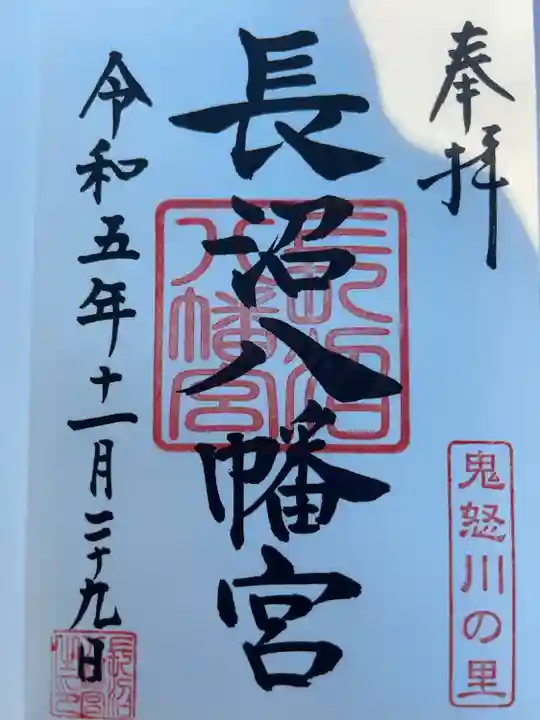 奉拝
鬼怒川の里
長沼八幡宮
長沼八幡宮
令和五年十一月二十九日